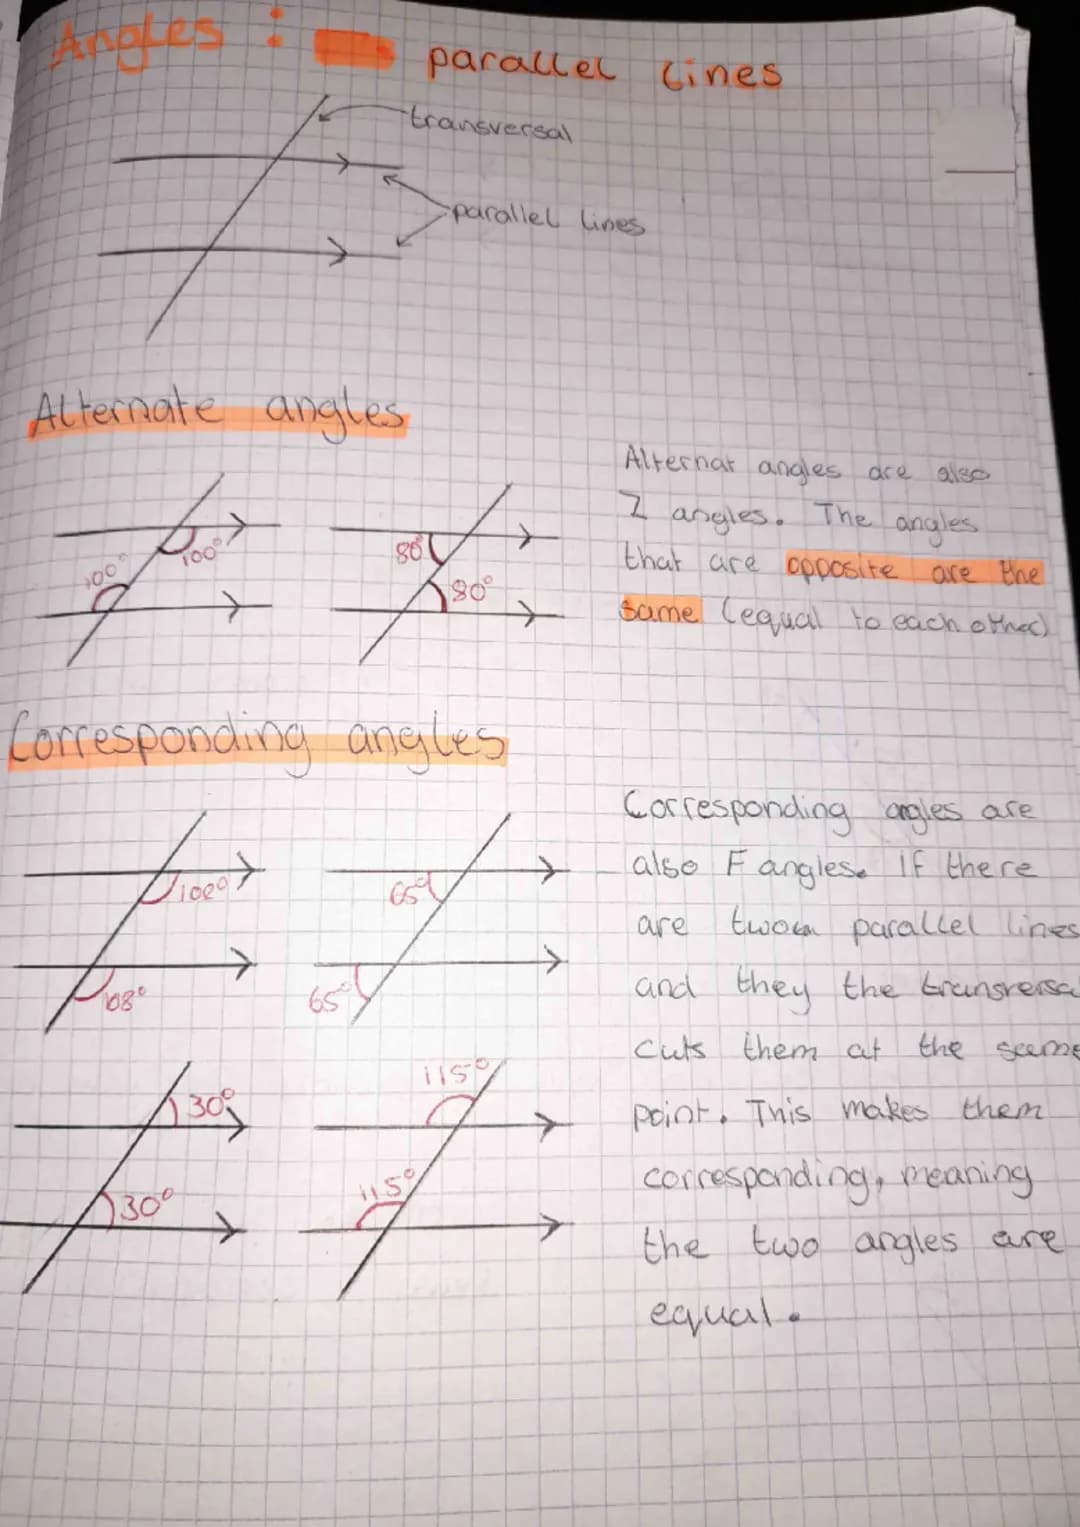 Angles :
parallel lines
transversal
parallel lines
Alternate angles
100° 100°
80°
80°
Alternat angles are also
Z angles. The angles
that are opposite are the
same (equal to each other)
Corresponding angles
65°
108°
65°
30°
115°
30°
115°
Corresponding angles are
also F angles. If there
are two parallel lines
and they the transversal
cuts them at the same
point. This makes them
corresponding, meaning
the two angles are
equal.